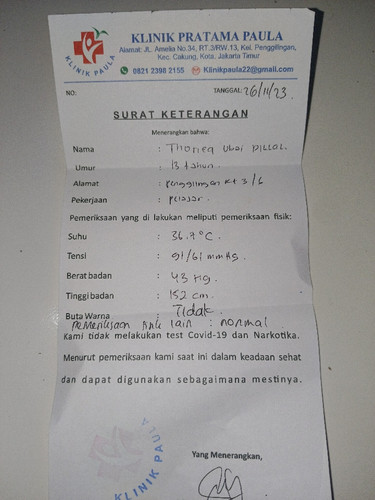 KLINIK PRATAMA PAULA
Alamat: JL. Amelia No.34, RT.3/RW.13, Kel. Penggilingan,
Kec. Cakung, Kota. Jakarta Timur
0821 2398 2155 Klinikpaula22@gmail.com
KLINIK PAULA
NO: TANGGAL: 26/11/23
SURAT KETERANGAN
Menerangkan bahwa:
Nama : Thoriq Ubai DILLAL.
Umur : 13 tahun.
Alamat : penggilingan Rt 3/6
Pekerjaan : pelajar.
Pemeriksaan yang di lakukan meliputi pemeriksaan fisik:
Suhu : 36.7°C.
Tensi : 91/61 mmHg.
Berat badan : 43 kg.
Tinggi badan : 152 cm.
Buta Warna : Tidak.
pemeriksaan fisik lain : normal
Kami tidak melakukan test Covid-19 dan Narkotika.
Menurut pemeriksaan kami saat ini dalam keadaan sehat
dan dapat digunakan sebagaimana mestinya.
Yang Menerangkan,
KLINIK PAULA